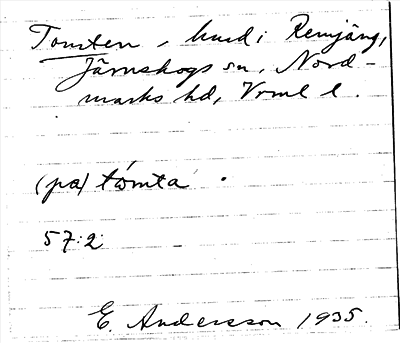 Tomten, hmd i Remjäng,
Järnskogs sn, Nord-
marks hd, Vrml l.
(pa) tòmta .
57:2
E. Andersson 1935.